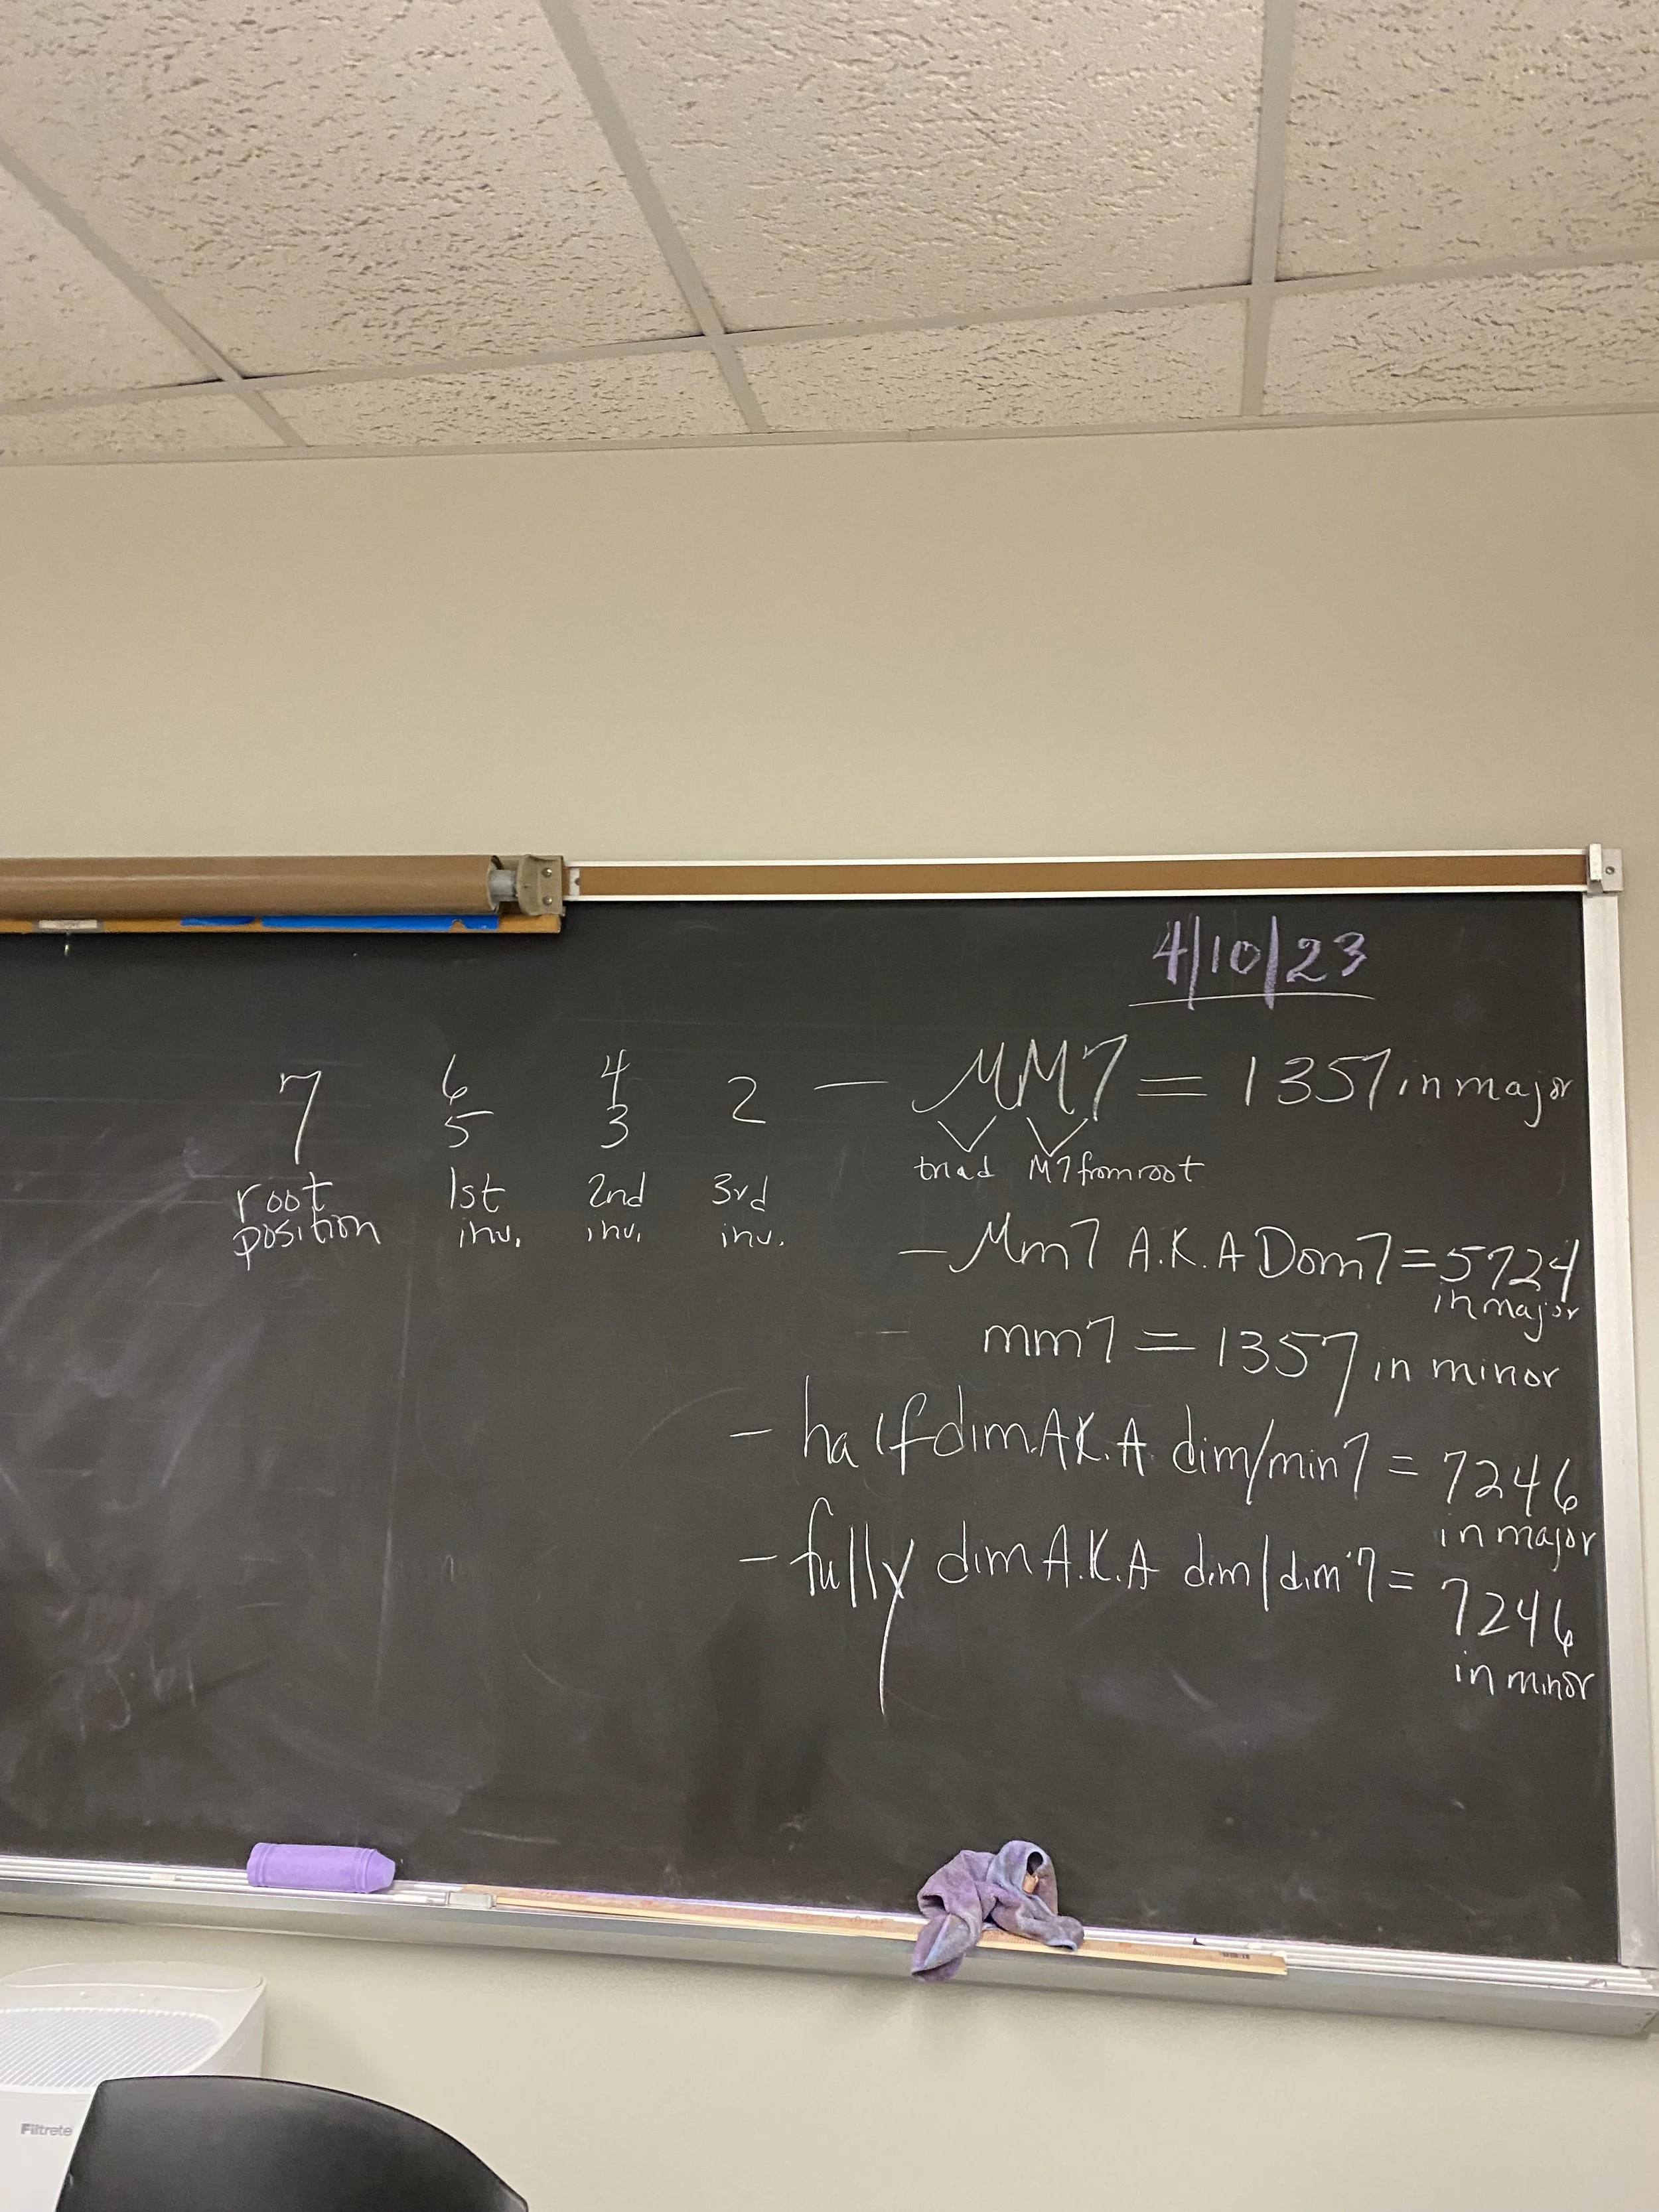 4/10/23
7 6/5 4/3 2 — MM7 = 1357 in major
triad M7 from root
root position 1st inv. 2nd inv. 3rd inv.
— Mm7 A.K.A Dom7 = 5724
in major
— mm7 = 1357 in minor
— half dim. A.K.A dim/min7 = 7246
in major
— fully dim A.K.A dim/dim7 = 7246
in minor
Filtrete